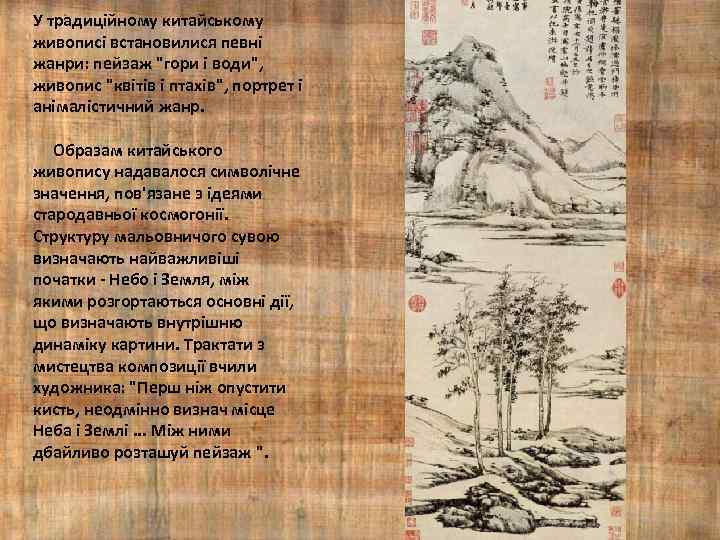 У традиційному китайському
живописі встановилися певні
жанри: пейзаж "гори і води",
живопис "квітів і птахів", портрет і
анімалістичний жанр.
Образам китайського
живопису надавалося символічне
значення, пов'язане з ідеями
стародавньої космогонії.
Структуру мальовничого сувою
визначають найважливіші
початки - Небо і Земля, між
якими розгортаються основні дії,
що визначають внутрішню
динаміку картини. Трактати з
мистецтва композиції вчили
художника: "Перш ніж опустити
кисть, неодмінно визнач місце
Неба і Землі ... Між ними
дбайливо розташуй пейзаж ".